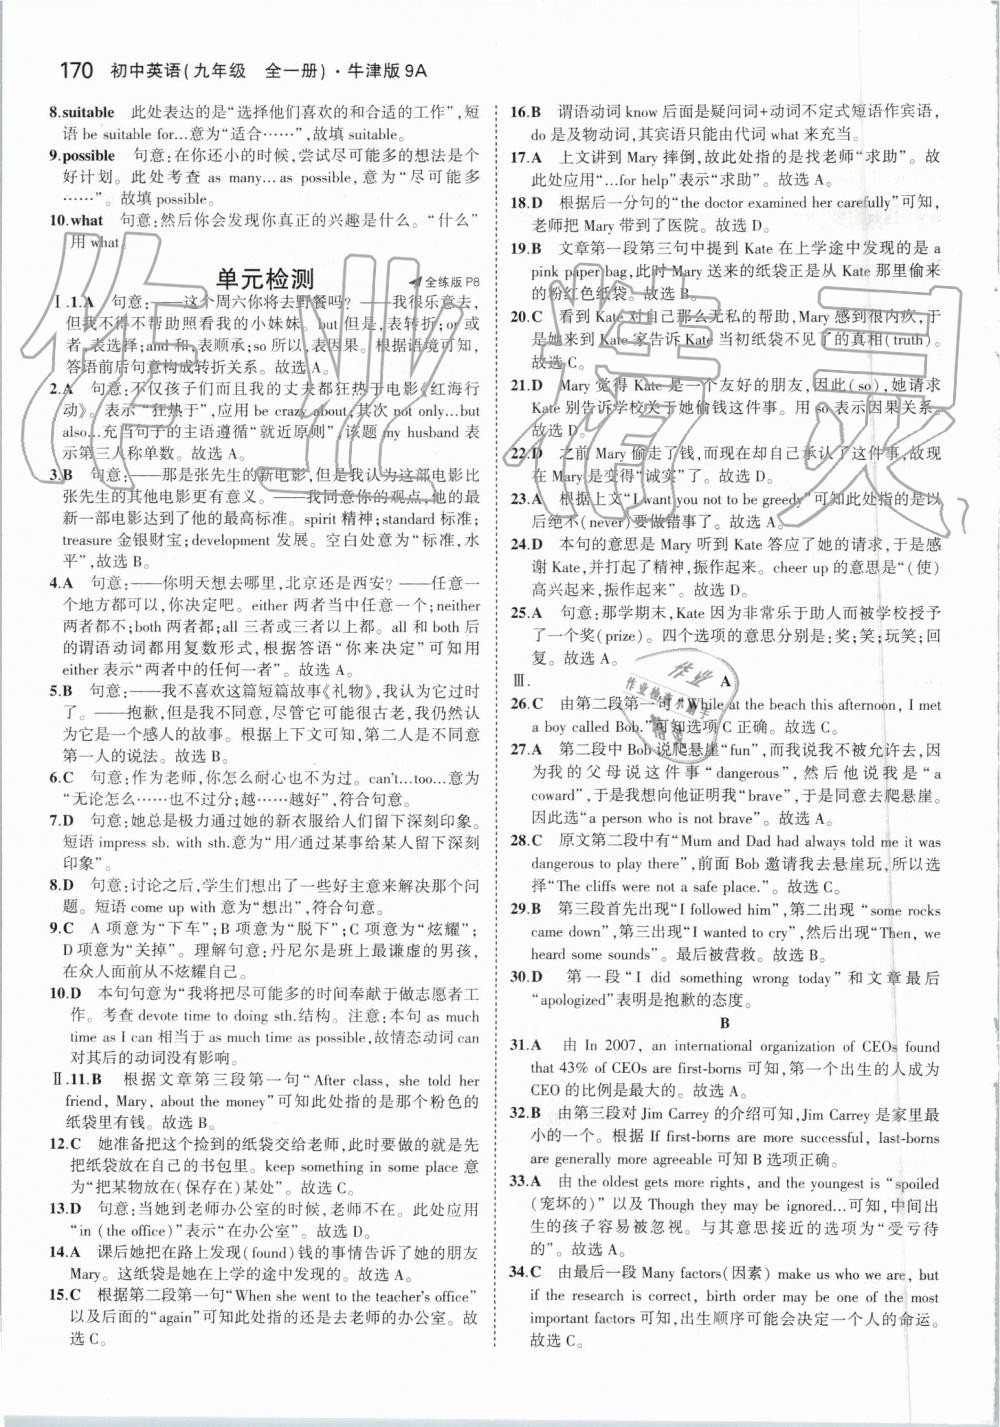 170 初中英语(九年级 全一册)·牛津版9A
8.suitable 此处表达的是“选择他们喜欢的和合适的工作”,短
语be suitable for…意为“适合……”,故填suitable。
9.possible 句意:在你还小的时候,尝试尽可能多的想法是个
好计划。此处考查 as many…as possible,意为“尽可能多
……”。故填possible。
10.what 句意:然后你会发现你真正的兴趣是什么。“什么”
用what。
单元检测 全练版P8
Ⅰ.1.A 句意:——这个周六你将去野餐吗? ——我很乐意去,
但我不得不帮助照看我的小妹妹。but但是,表转折;or或
者,表选择;and和,表顺承;so所以,表因果。根据语境可知,
答语前后句意构成转折关系。故选A。
2.A 句意:不仅孩子们而且我的丈夫都狂热于电影《红海行
动》。表示“狂热于”,应用be crazy about;其次not only…but
also…充当句子的主语遵循“就近原则”,该题my husband表
示第三人称单数。故选A。
3.B 句意:——那是张先生的新电影,但是我认为这部电影比
张先生的其他电影更有意义。——我同意你的观点,他的最
新一部电影达到了他的最高标准。spirit精神;standard标准;
treasure金银财宝;development发展。空白处意为“标准,水
平”,故选B。
4.A 句意:——你明天想去哪里,北京还是西安? ——任意一
个地方都可以,你决定吧。either两者当中任意一个;neither
两者都不;both两者都;all三者或三者以上都。all和both后
的谓语动词都用复数形式,根据答语“你来决定”可知用
either表示“两者中的任何一者”。故选A。
5.B 句意:——我不喜欢这篇短篇故事《礼物》,我已忘记过它
了。——抱歉,但我不同意,尽管它可能很古老,我仍然认
为它是一个感人的故事。根据上下文可知,第二人是不同意
第一人的说法。故选B。
6.C 句意:作为老师,你怎么耐心也不为过。can't…too…意为
“无论怎么……也不过分;越……越好”,符合句意。
7.D 句意:她总是极力通过她的新衣服给人们留下深刻印象。
短语impress sb. with sth.意为“用/通过某事给某人留下深刻
印象”。
8.D 句意:讨论之后,学生们想出了一些好主意来解决那个问
题。短语come up with意为“想出”,符合句意。
9.C A项意为“下车”;B项意为“脱下”;C项意为“炫耀”;
D项意为“关掉”。理解句意:丹尼尔是班上最谦虚的男孩,
在众人面前从不炫耀自己。
10.D 本句句意为“我将把尽可能多的时间奉献于做志愿者工
作。考查devote time to doing sth.结构。注意:本句as much
time as I can相当于as much time as possible;故情态动词can
对其后的动词没有影响。
Ⅱ.11.B 根据文章第三段第一句“After class, she told her
friend, Mary, about the money”可知此处指的是那个粉色的
纸袋里有钱。故选B。
12.C 她准备把这个捡到的纸袋交给老师,此时要做的就是先
把纸袋放在自己的书包里。keep something in some place意
为“把某物放在(保存在)某处”。故选C。
13.D 句意:当她到老师办公室的时候,老师不在。此处应用
“in (the office)”表示“在办公室”。故选D。
14.A 课后她把在路上发现(found)钱的事情告诉了她的朋友
Mary。这纸袋是她在上学的途中发现的。故选A。
15.C 根据第二段第一句“When she went to the teacher's office”
以及后面的“again”可知此处指的还是去老师的办公室。故
选C。
16.B 谓语动词know后面是疑问词+动词不定式短语作宾语,
do是及物动词,其宾语只能由代词what来充当。
17.A 上文讲到Mary摔倒,故此处指的是找老师“求助”。故
此处应用“…for help”表示“求助”。故选A。
18.D 根据后一分句的“the doctor examined her carefully”可知,
老师把Mary带到了医院。故选D。
19.B 文章第一段第三句中提到Kate在上学途中发现的是a
pink paper bag,此时Mary送来的纸袋正是从Kate那里偷来
的粉红色纸袋。故选B。
20.C 看到Kate对自己那么无私的帮助,Mary感到很内疚,于
是来到Kate家告诉Kate当初纸袋不见了的真相(truth)。
故选C。
21.D Mary觉得Kate是一个友好的朋友,因此(so),她请求
Kate别告诉学校关于她偷钱这件事。用so表示因果关系。
故选D。
22.D 之前Mary偷走了钱,而现在却自己承认了这件事,故现
在Mary是变得“诚实”了。故选D。
23.A 根据上文“I want you not to be greedy”可知此处指的是以
后绝不(never)要做错事了。故选A。
24.D 本句的意思是Mary听到Kate答应了她的请求,于是感
谢Kate,并打起了精神,振作起来。cheer up的意思是“(使)
高兴起来,振作起来”。故选D。
25.A 句意:那学期末,Kate因为非常乐于助人而被学校授予
了一个奖(prize)。四个选项的意思分别是:奖;笑;玩笑;回
复。故选A。
Ⅲ. A
26.C 由第二段第一句“While at the beach this afternoon, I met
a boy called Bob.”可知选项C正确。故选C。
27.A 第二段中Bob说爬悬崖“fun”,而我说我不被允许去,因
为我的父母说这件事“dangerous”,然后他说我是“a
coward”,于是我想向他证明我“brave”,于是同意去爬悬崖。
因此选“a person who is not brave”。故选A。
28.C 原文第二段中有“Mum and Dad had always told me it was
dangerous to play there”,前面Bob邀请我去悬崖玩,所以选
择“The cliffs were not a safe place.”。故选C。
29.B 第三段首先出现“I followed him”,第二出现“some rocks
came down”,第三出现“I wanted to cry”,然后出现“Then, we
heard someone shouting”。最后被营救。故选B。
30.D 第一段“I did something wrong today”和文章最后
“apologized”表明是抱歉的态度。
B
31.A 由In 2007, an international organization of CEOs found
that 43% of CEOs are first-borns可知,第一个出生的人成为
CEO的比例是最大的。故选A。
32.B 由第三段对Jim Carrey的介绍可知,Jim Carrey是家里最
小的一个。根据If first-borns are more successful, last-borns
are generally more agreeable可知B选项正确。
33.A 由the oldest gets more rights, and the youngest is “spoiled
(宠坏的)”以及Though they may be ignored…可知,中间出
生的孩子容易被忽视。与其意思接近的选项为“受亏待
的”。故选A。
34.C 由最后一段Many factors(因素) make us who we are, but
if the research is correct, birth order may be one of the most
important factors可知,出生顺序可能会决定一个人的命运。
故选C。
作业精灵
作业
作业检查小助手
精灵